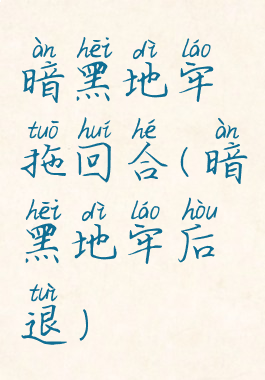 àn hēi dì láo
暗黑地牢
tuō huí hé àn
拖回合(暗
hēi dì láo hòu
黑地牢后
tuì
退)